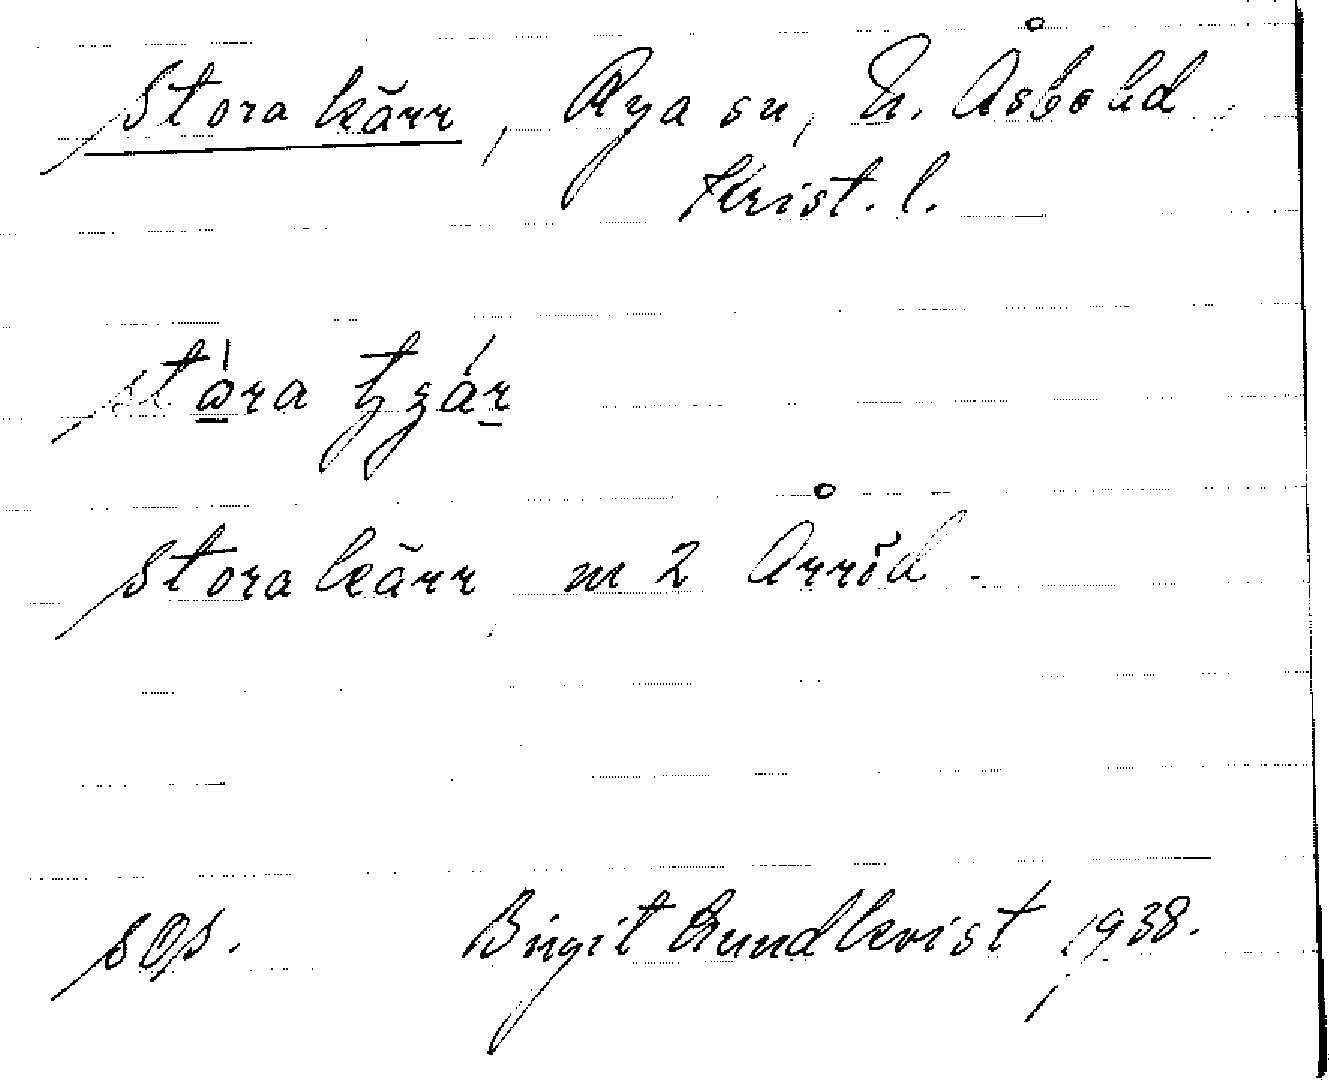 Stora kärr, Rya sn, N. Åsbohd
Krist. l.
stòra tʒár
Stora kärr m 2 Årröd.
Birgit Lundkvist 1938.